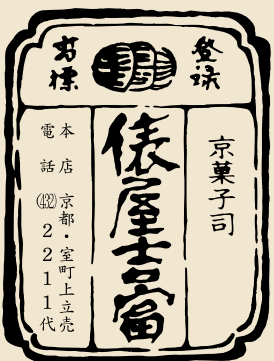 登録
商標
京菓子司
俵屋吉富
本店 京都・室町上立売
電話 (432) 2211代